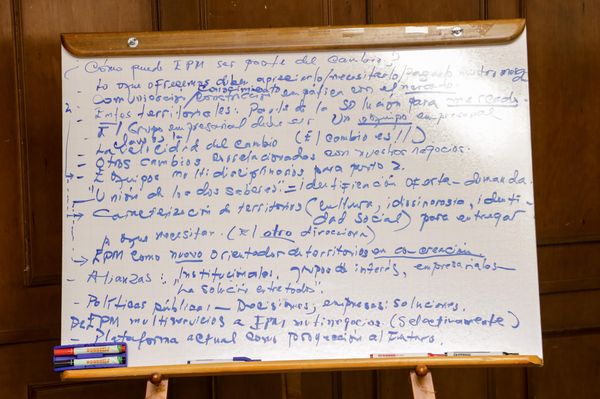 ¿Cómo puede EPM ser parte del cambio?
- Lo que ofrecemos deben apreciarlo/necesitarlo/
conocimiento
Comunicación/ empática con el mercado.
- Entes territoriales: Parte de la solución para mercado.
- El Grupo empresarial debe ser un equipo empresarial
- La velocidad del cambio (El cambio es !!)
- Otros cambios enrelacionados con nuestros negocios.
- Equipos multidisciplinarios para punto 2.
- "Unión de los dos saberes" = identificación oferta - demanda
→ Caracterización de territorios (cultura, idiosincrasia, identi-
dad social) para entregar
lo que necesitan. (El otro direcciona)
→ EPM como nuevo orientador de territorios en co-creación
- Alianzas: "Institucionales, grupos de interés, empresariales
La solución entre todos".
- Políticas públicas - Decisiones, empresas: soluciones.
De EPM multiservicios a EPM multinegocios (selectivamente)
- Plataforma actual como proyección al futuro.